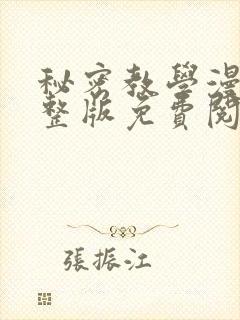 秘密教學漫
整版免費閱
張振江